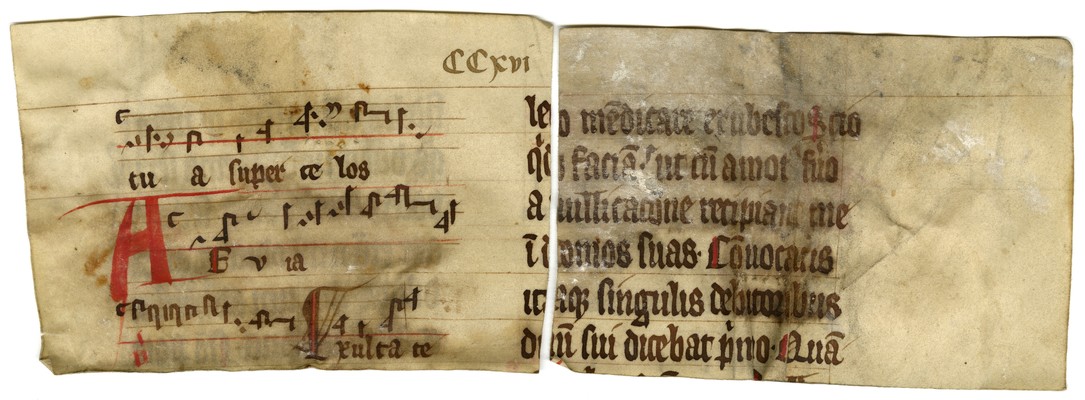 CCxvi
tu a super ce los
A E v ia
Exulta te
leo mēdicare erubesco Scio
faciā ut cū amot
a uillicatione recipiant me
ī domos suas. Cōuocatis
itaqꝫ singulis debitoribus
dnī sui dicebat p̄mo. Quā